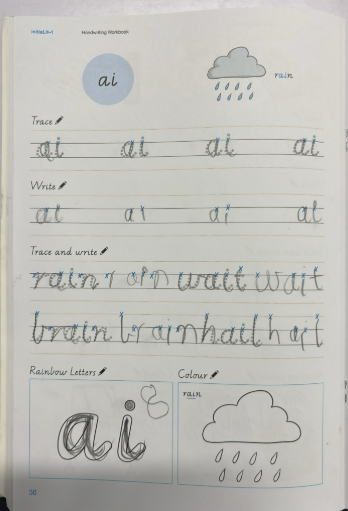 Initial Handwriting Workbook
ai rain
Trace
ai ai ai ai
Write
ai ai ai ai
Trace and write
rain rain wait wait
brain brain hail hail
Rainbow Letters Colour
rain
ai